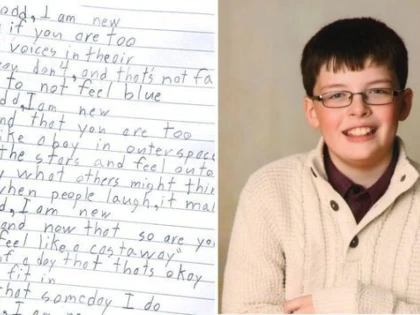 odd, I am new
if you are too
voices in their
you don't, and that's not fa
to not feel blue
dd, I am new
nd that you are too
like a boy in outerspace
the stars and feel outo
y what others might thin
when people laugh, it mak
d, I am new
and now that so are you
feel like a castaway"
of a day that thats okay
fit in
that someday I do
I am new